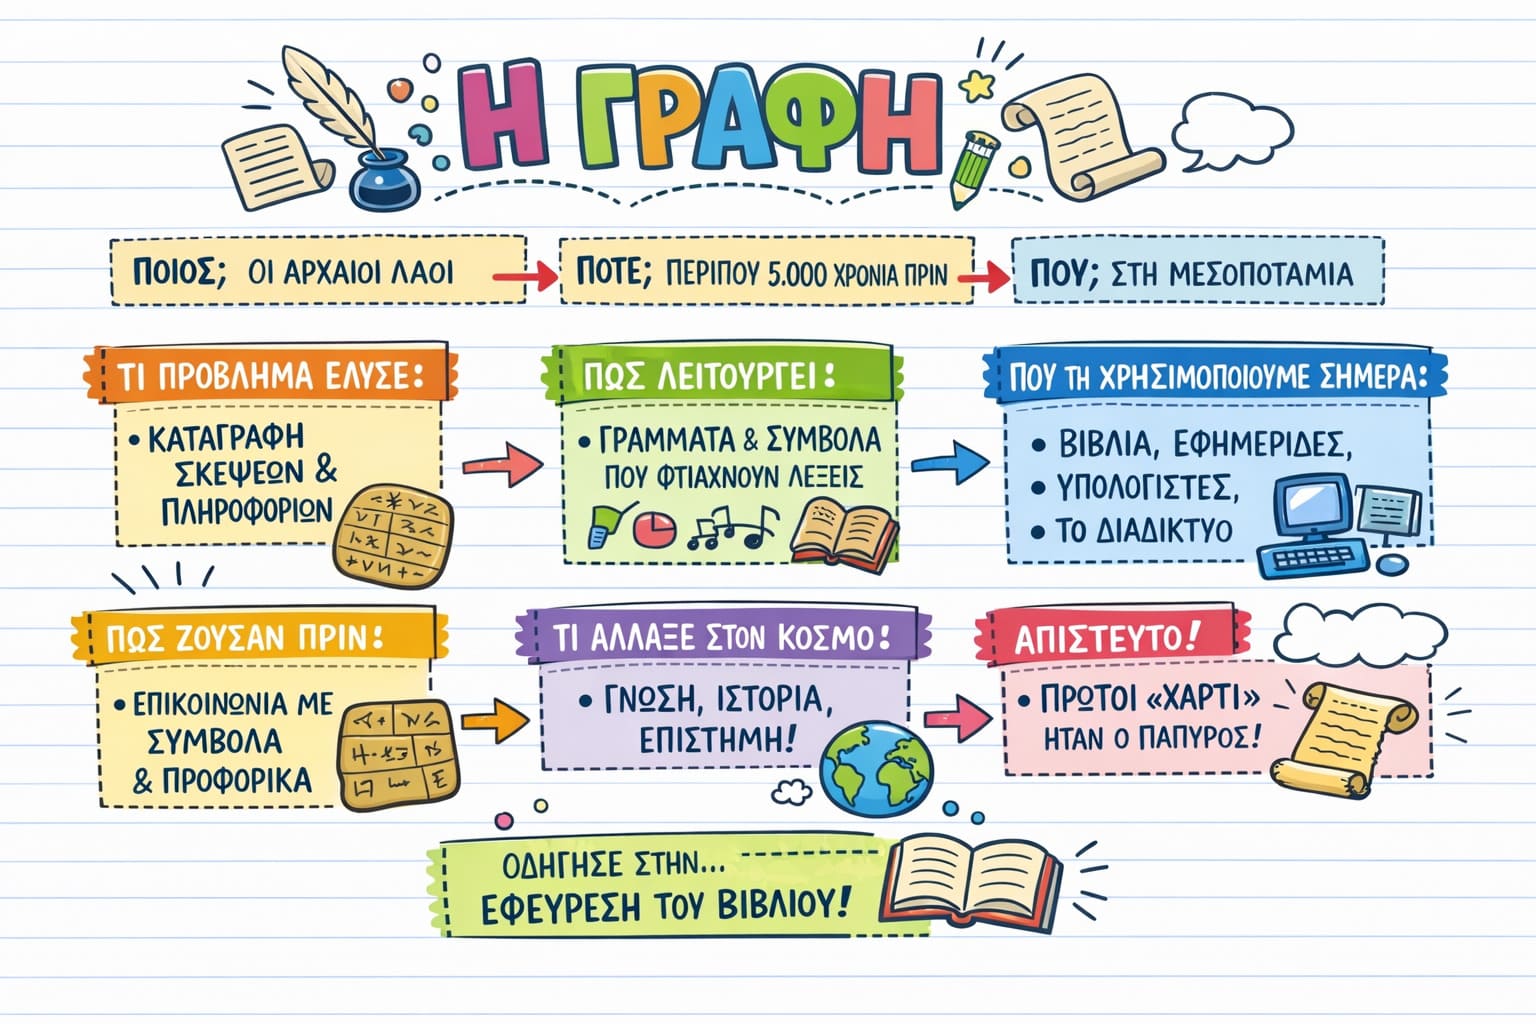 Η ΓΡΑΦΗ
ΠΟΙΟΣ; ΟΙ ΑΡΧΑΙΟΙ ΛΑΟΙ
ΠΟΤΕ; ΠΕΡΙΠΟΥ 5.000 ΧΡΟΝΙΑ ΠΡΙΝ
ΠΟΥ; ΣΤΗ ΜΕΣΟΠΟΤΑΜΙΑ
ΤΙ ΠΡΟΒΛΗΜΑ ΕΛΥΣΕ:
• ΚΑΤΑΓΡΑΦΗ
ΣΚΕΨΕΩΝ &
ΠΛΗΡΟΦΟΡΙΩΝ
ΠΩΣ ΛΕΙΤΟΥΡΓΕΙ:
• ΓΡΑΜΜΑΤΑ & ΣΥΜΒΟΛΑ
ΠΟΥ ΦΤΙΑΧΝΟΥΝ ΛΕΞΕΙΣ
ΠΟΥ ΤΗ ΧΡΗΣΙΜΟΠΟΙΟΥΜΕ ΣΗΜΕΡΑ:
• ΒΙΒΛΙΑ, ΕΦΗΜΕΡΙΔΕΣ,
• ΥΠΟΛΟΓΙΣΤΕΣ,
• ΤΟ ΔΙΑΔΙΚΤΥΟ
ΠΩΣ ΖΟΥΣΑΝ ΠΡΙΝ:
• ΕΠΙΚΟΙΝΩΝΙΑ ΜΕ
ΣΥΜΒΟΛΑ
& ΠΡΟΦΟΡΙΚΑ
ΤΙ ΑΛΛΑΞΕ ΣΤΟΝ ΚΟΣΜΟ:
• ΓΝΩΣΗ, ΙΣΤΟΡΙΑ,
ΕΠΙΣΤΗΜΗ!
ΑΠΙΣΤΕΥΤΟ!
• ΠΡΩΤΟΙ «ΧΑΡΤΙ»
ΗΤΑΝ Ο ΠΑΠΥΡΟΣ!
ΟΔΗΓΗΣΕ ΣΤΗΝ...
ΕΦΕΥΡΕΣΗ ΤΟΥ ΒΙΒΛΙΟΥ!